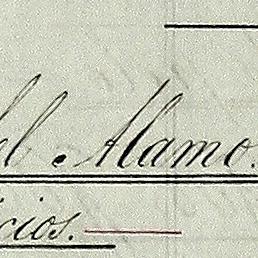 el Alamo.
icios.